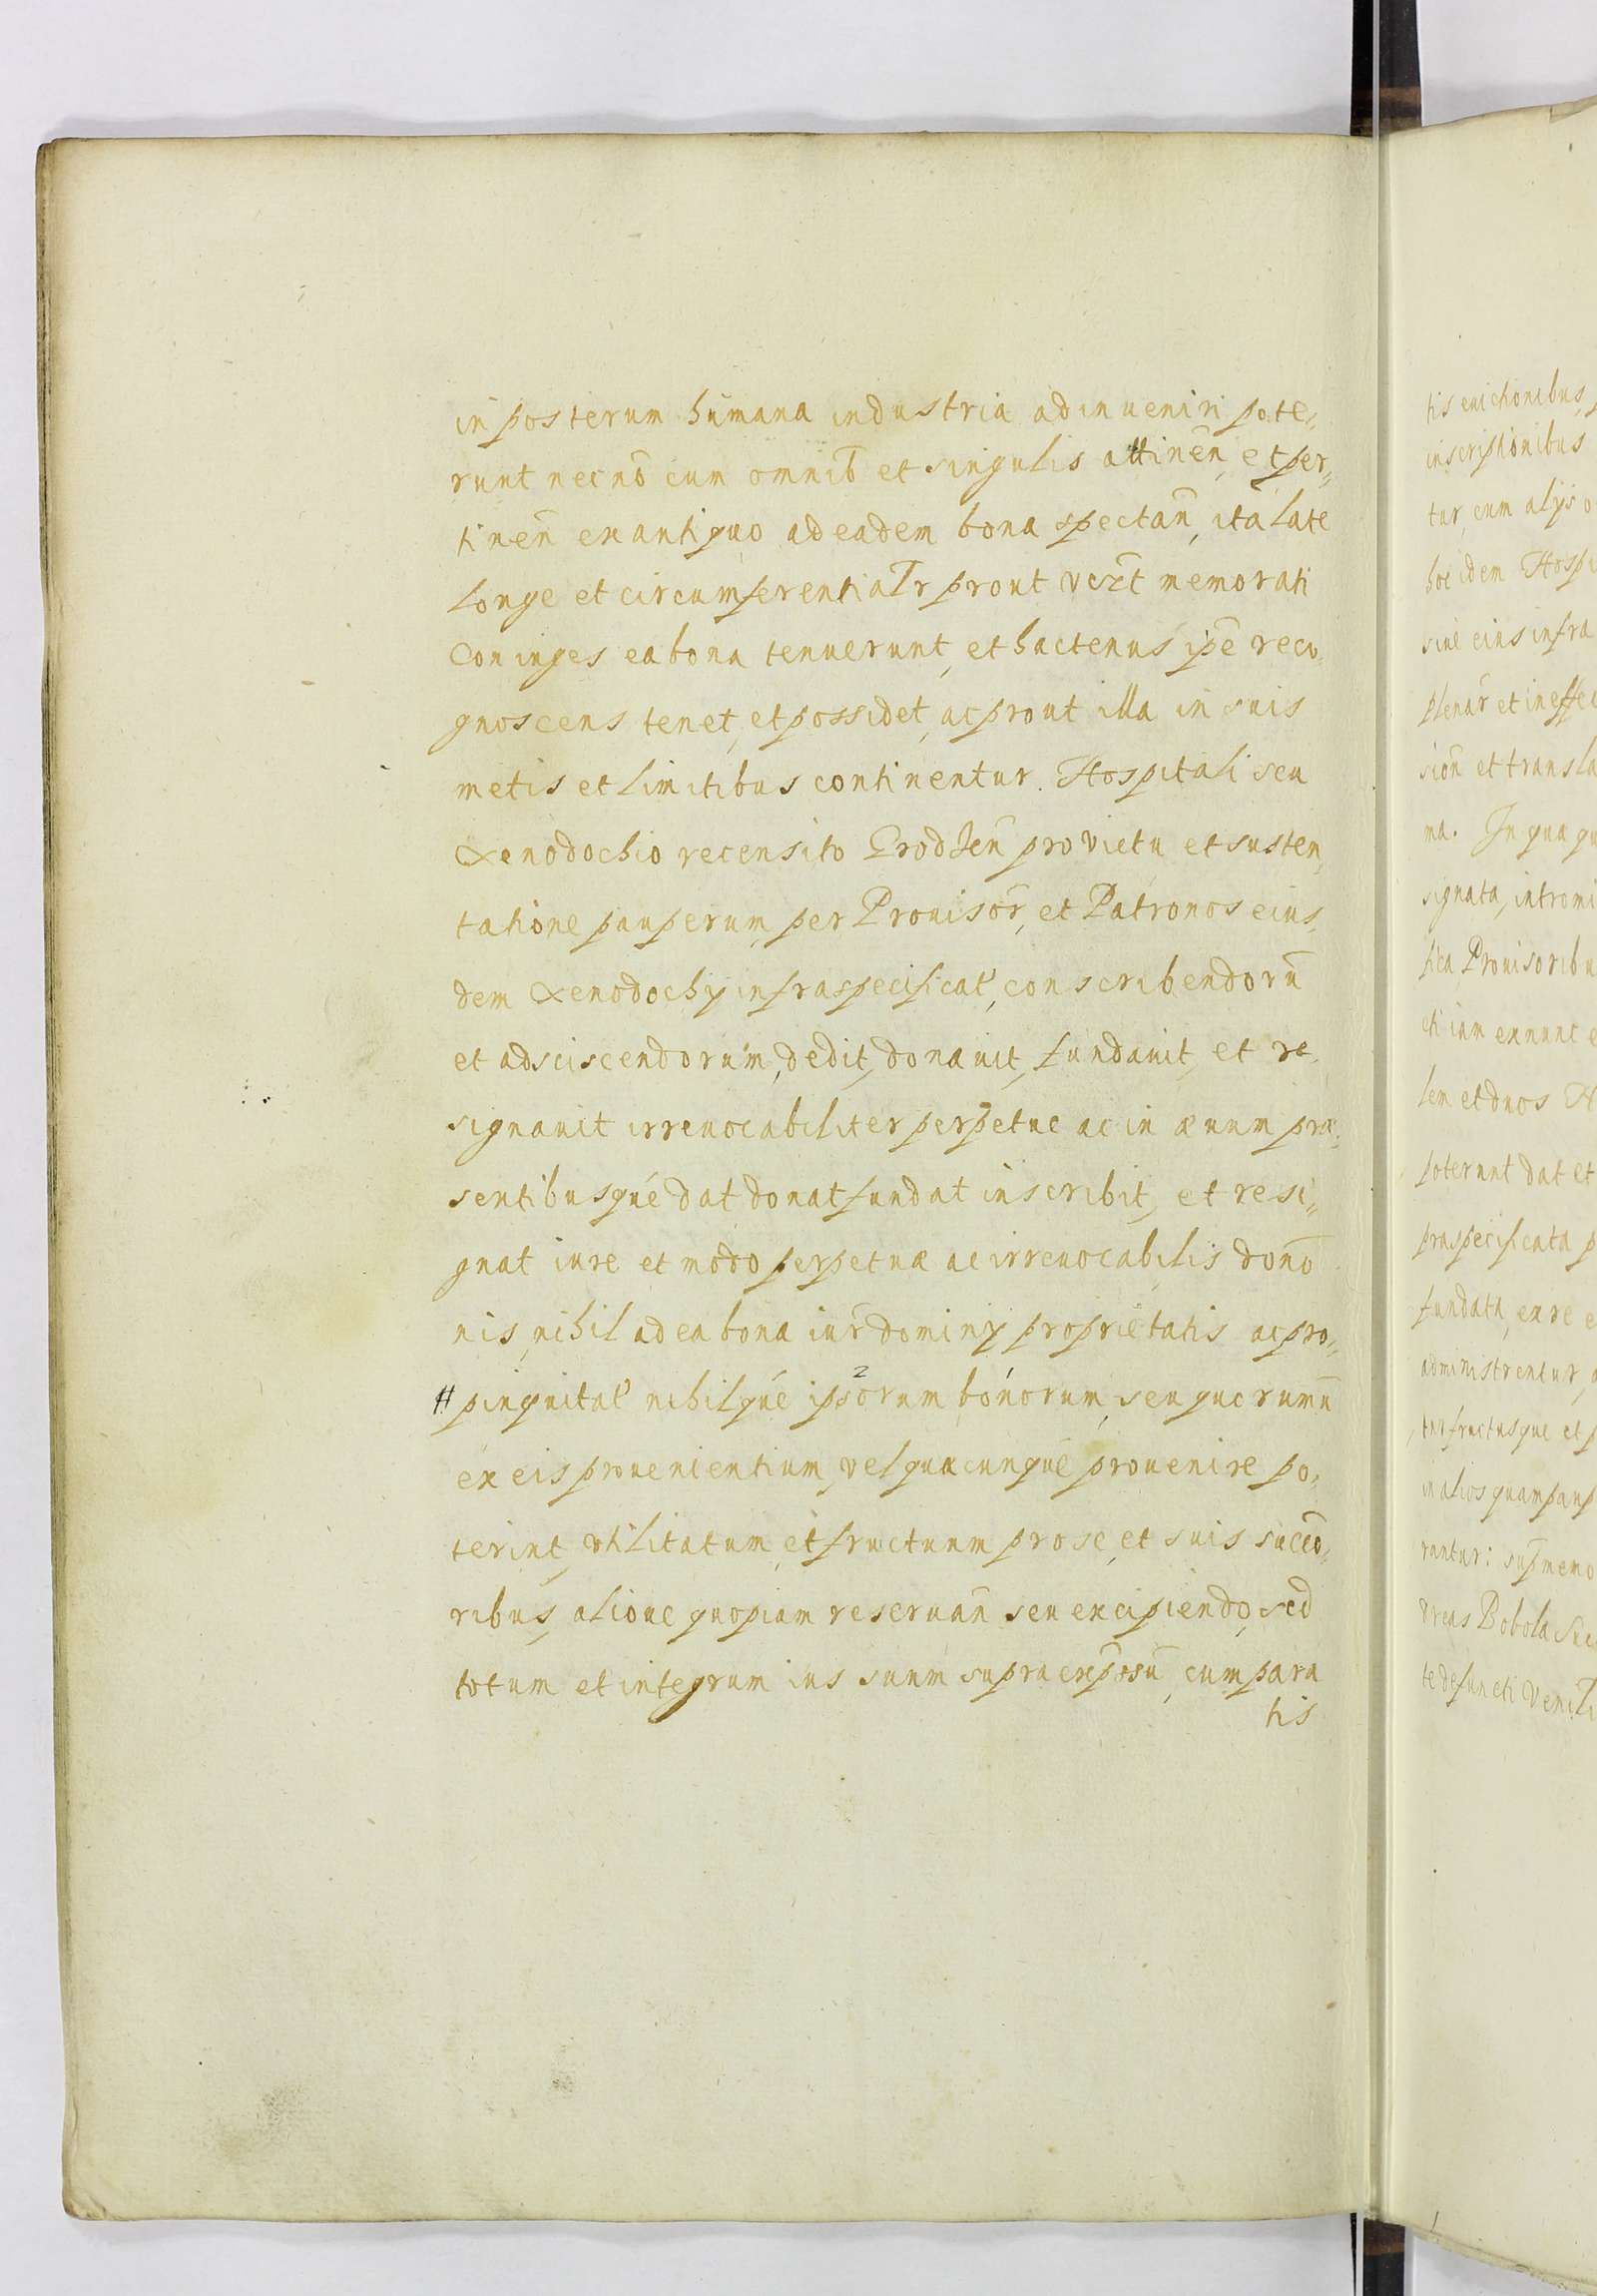 in posterum humana industria adinueniri pote,,
runt necnō cum omnib̄ et singulis attinēn, et per,,
tinēn ex antiquo ad eadem bona spectān, ita late
longe et circumferential̄r prout vt̄ memorati
Coniuges ea bona tenuerunt, et hactenus ip̄e reco,
gnoscens tenet, et possidet, ac prout illa in suis
metis et limitibus continentur. Hospitali seu
Xenodochio recensito Grodzēn pro victu et susten,
tatione pauperum, per Prouisōr, et Patronos eius,
dem Xenodochij infraspecificat̄, conscribendorū
et adsciscendorum, dedit, donauit, fundauit, et re,
signauit irreuocabiliter perpetue ac in æuum præ,
sentibusque dat donat fundat inscribit, et resi,,
gnat iure et modo perpetuæ ac irreuocabilis donō
nis, nihil ad ea bona iur̄ dominij proprietatis ac pro,,
# pinquitat̄ nihilque ipsorum bonorum, seu quorumū
ex eis prouenientium, vel quæcunque prouenire po,
terint, vtilitatum, et fructuum pro se, et suis succō,
ribus, alioue quopiam reseruān seu excipiendo, sed
totum et integrum ius suum supra exposū, cum para
tis
tis euictionibus,
inscriptionibus
tur, cum alijs o
hoc idem Hospi
siue eius infra
plenār et in effec
siōn et transla
ma. In qua qu
signata, intromi
lica Prouisoribu
etiam ex nunc e
lem et duos
poterunt dat et
præspecificata p
fundata, ex re e
administrentur,
fructusque et p
in alios quam paup
rantur: sup̄memo
dreas Bobola
te defuncti